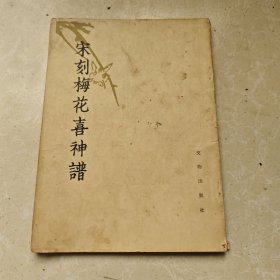 宋刻梅花喜神譜
文物出版社